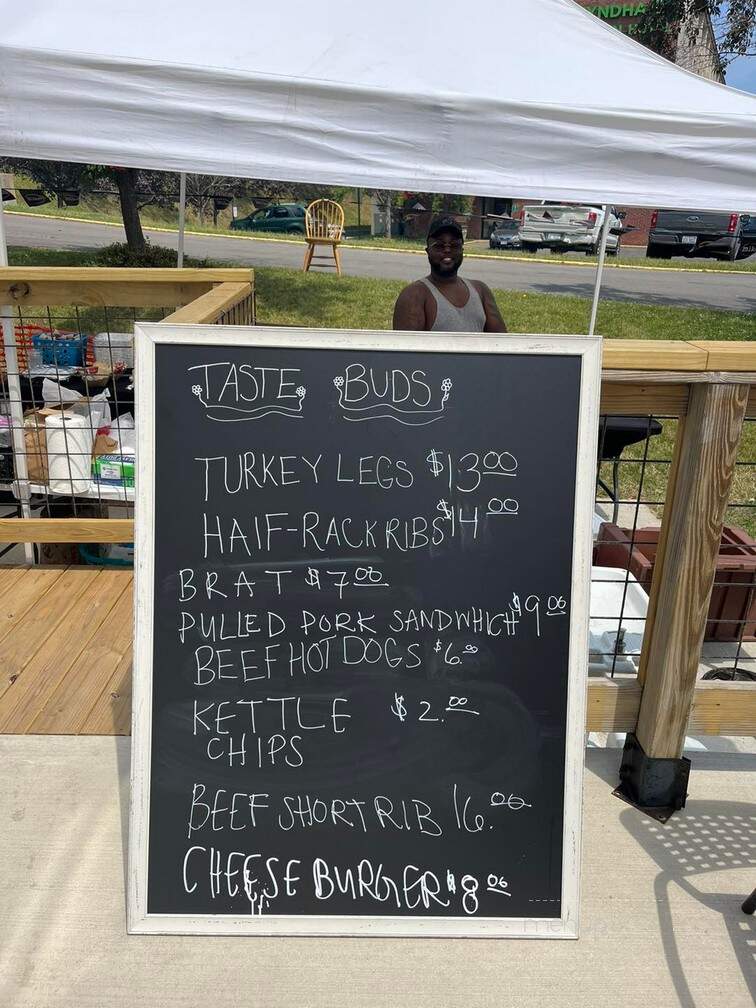 YNDHA
TASTE BUDS
TURKEY LEGS $13.00
HAIF-RACK RIBS $14.00
BRAT $7.00
PULLED PORK SANDWHICH $9.00
BEEF HOT DOGS $6.00
KETTLE $2.00
CHIPS
BEEF SHORT RIB 16.00
CHEESE BURGER $8.00